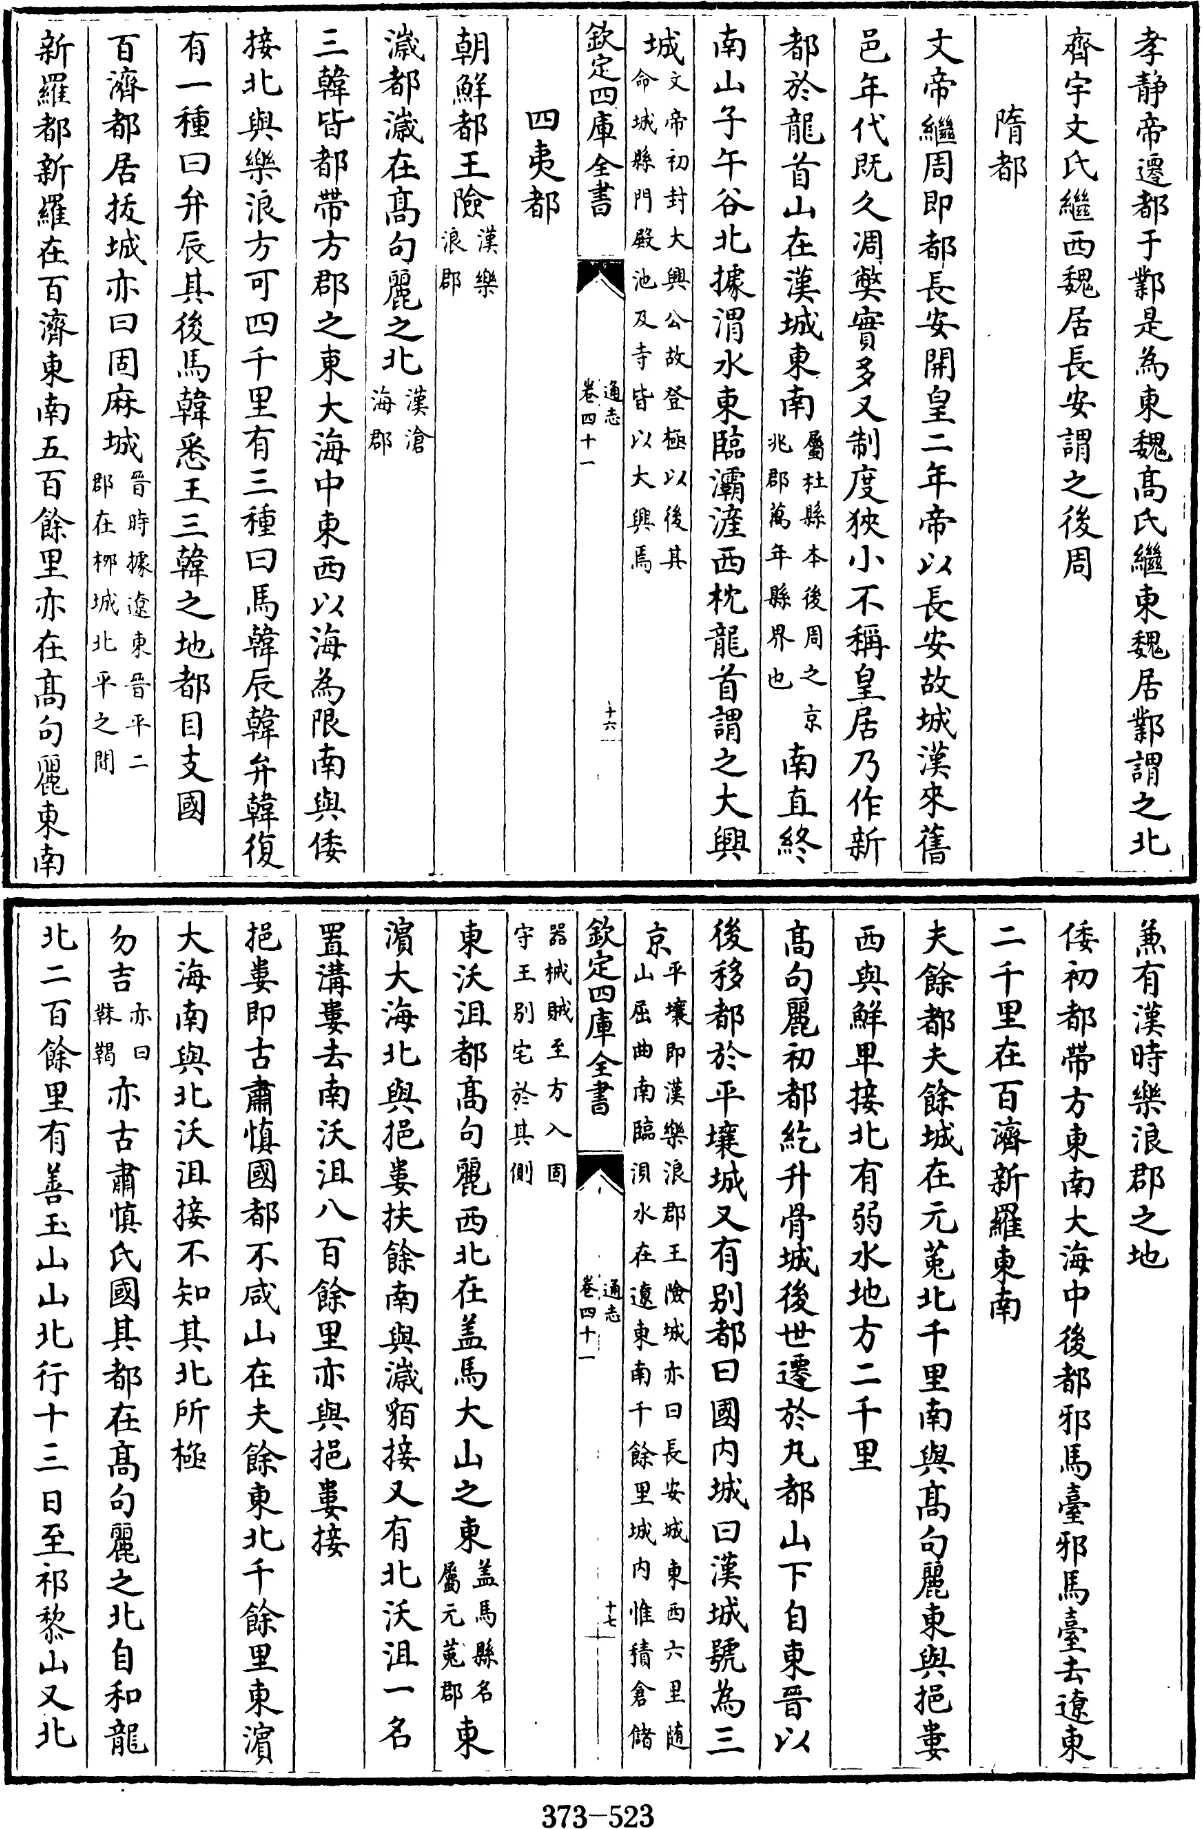 孝静帝遷都于鄴是為東魏髙氏繼東魏居鄴謂之北
齊宇文氏繼西魏居長安謂之後周
隋都
文帝繼周即都長安開皇二年帝以長安故城漢來舊
邑年代既久凋弊實多又制度狹小不稱皇居乃作新
都於龍首山在漢城東南屬杜縣本後周之京兆郡萬年縣界也南直終
南山子午谷北據渭水東臨灞滻西枕龍首謂之大興
城文帝初封大興公故登極以後其命城縣門殿池及寺皆以大興焉
欽定四庫全書
通志
卷四十一
十六
四夷都
朝鮮都王險漢樂浪郡
濊都濊在髙句麗之北漢滄海郡
三韓皆都帶方郡之東大海中東西以海為限南與倭
接北與樂浪方可四千里有三種曰馬韓辰韓弁韓復
有一種曰弁辰其後馬韓悉王三韓之地都目支國
百濟都居拔城亦曰固麻城晉時據遼東晉平二郡在柳城北平之間
新羅都新羅在百濟東南五百餘里亦在髙句麗東南
兼有漢時樂浪郡之地
倭初都帶方東南大海中後都邪馬臺邪馬臺去遼東
二千里在百濟新羅東南
夫餘都夫餘城在元菟北千里南與髙句麗東與挹婁
西與鮮卑接北有弱水地方二千里
髙句麗初都紇升骨城後世遷於丸都山下自東晉以
後移都於平壤城又有別都曰國内城曰漢城號為三
京平壤即漢樂浪郡王險城亦曰長安城東西六里随山屈曲南臨浿水在遼東南千餘里城内惟積倉儲
欽定四庫全書
通志
卷四十一
十七
器械賊至方入固守王別宅於其側
東沃沮都髙句麗西北在盖馬大山之東盖馬縣名屬元菟郡東
濱大海北與挹婁扶餘南與濊貊接又有北沃沮一名
置溝婁去南沃沮八百餘里亦與挹婁接
挹婁即古肅慎國都不咸山在夫餘東北千餘里東濵
大海南與北沃沮接不知其北所極
勿吉亦曰靺鞨亦古肅慎氏國其都在髙句麗之北自和龍
北二百餘里有善玉山山北行十三日至祁黎山又北
373-523